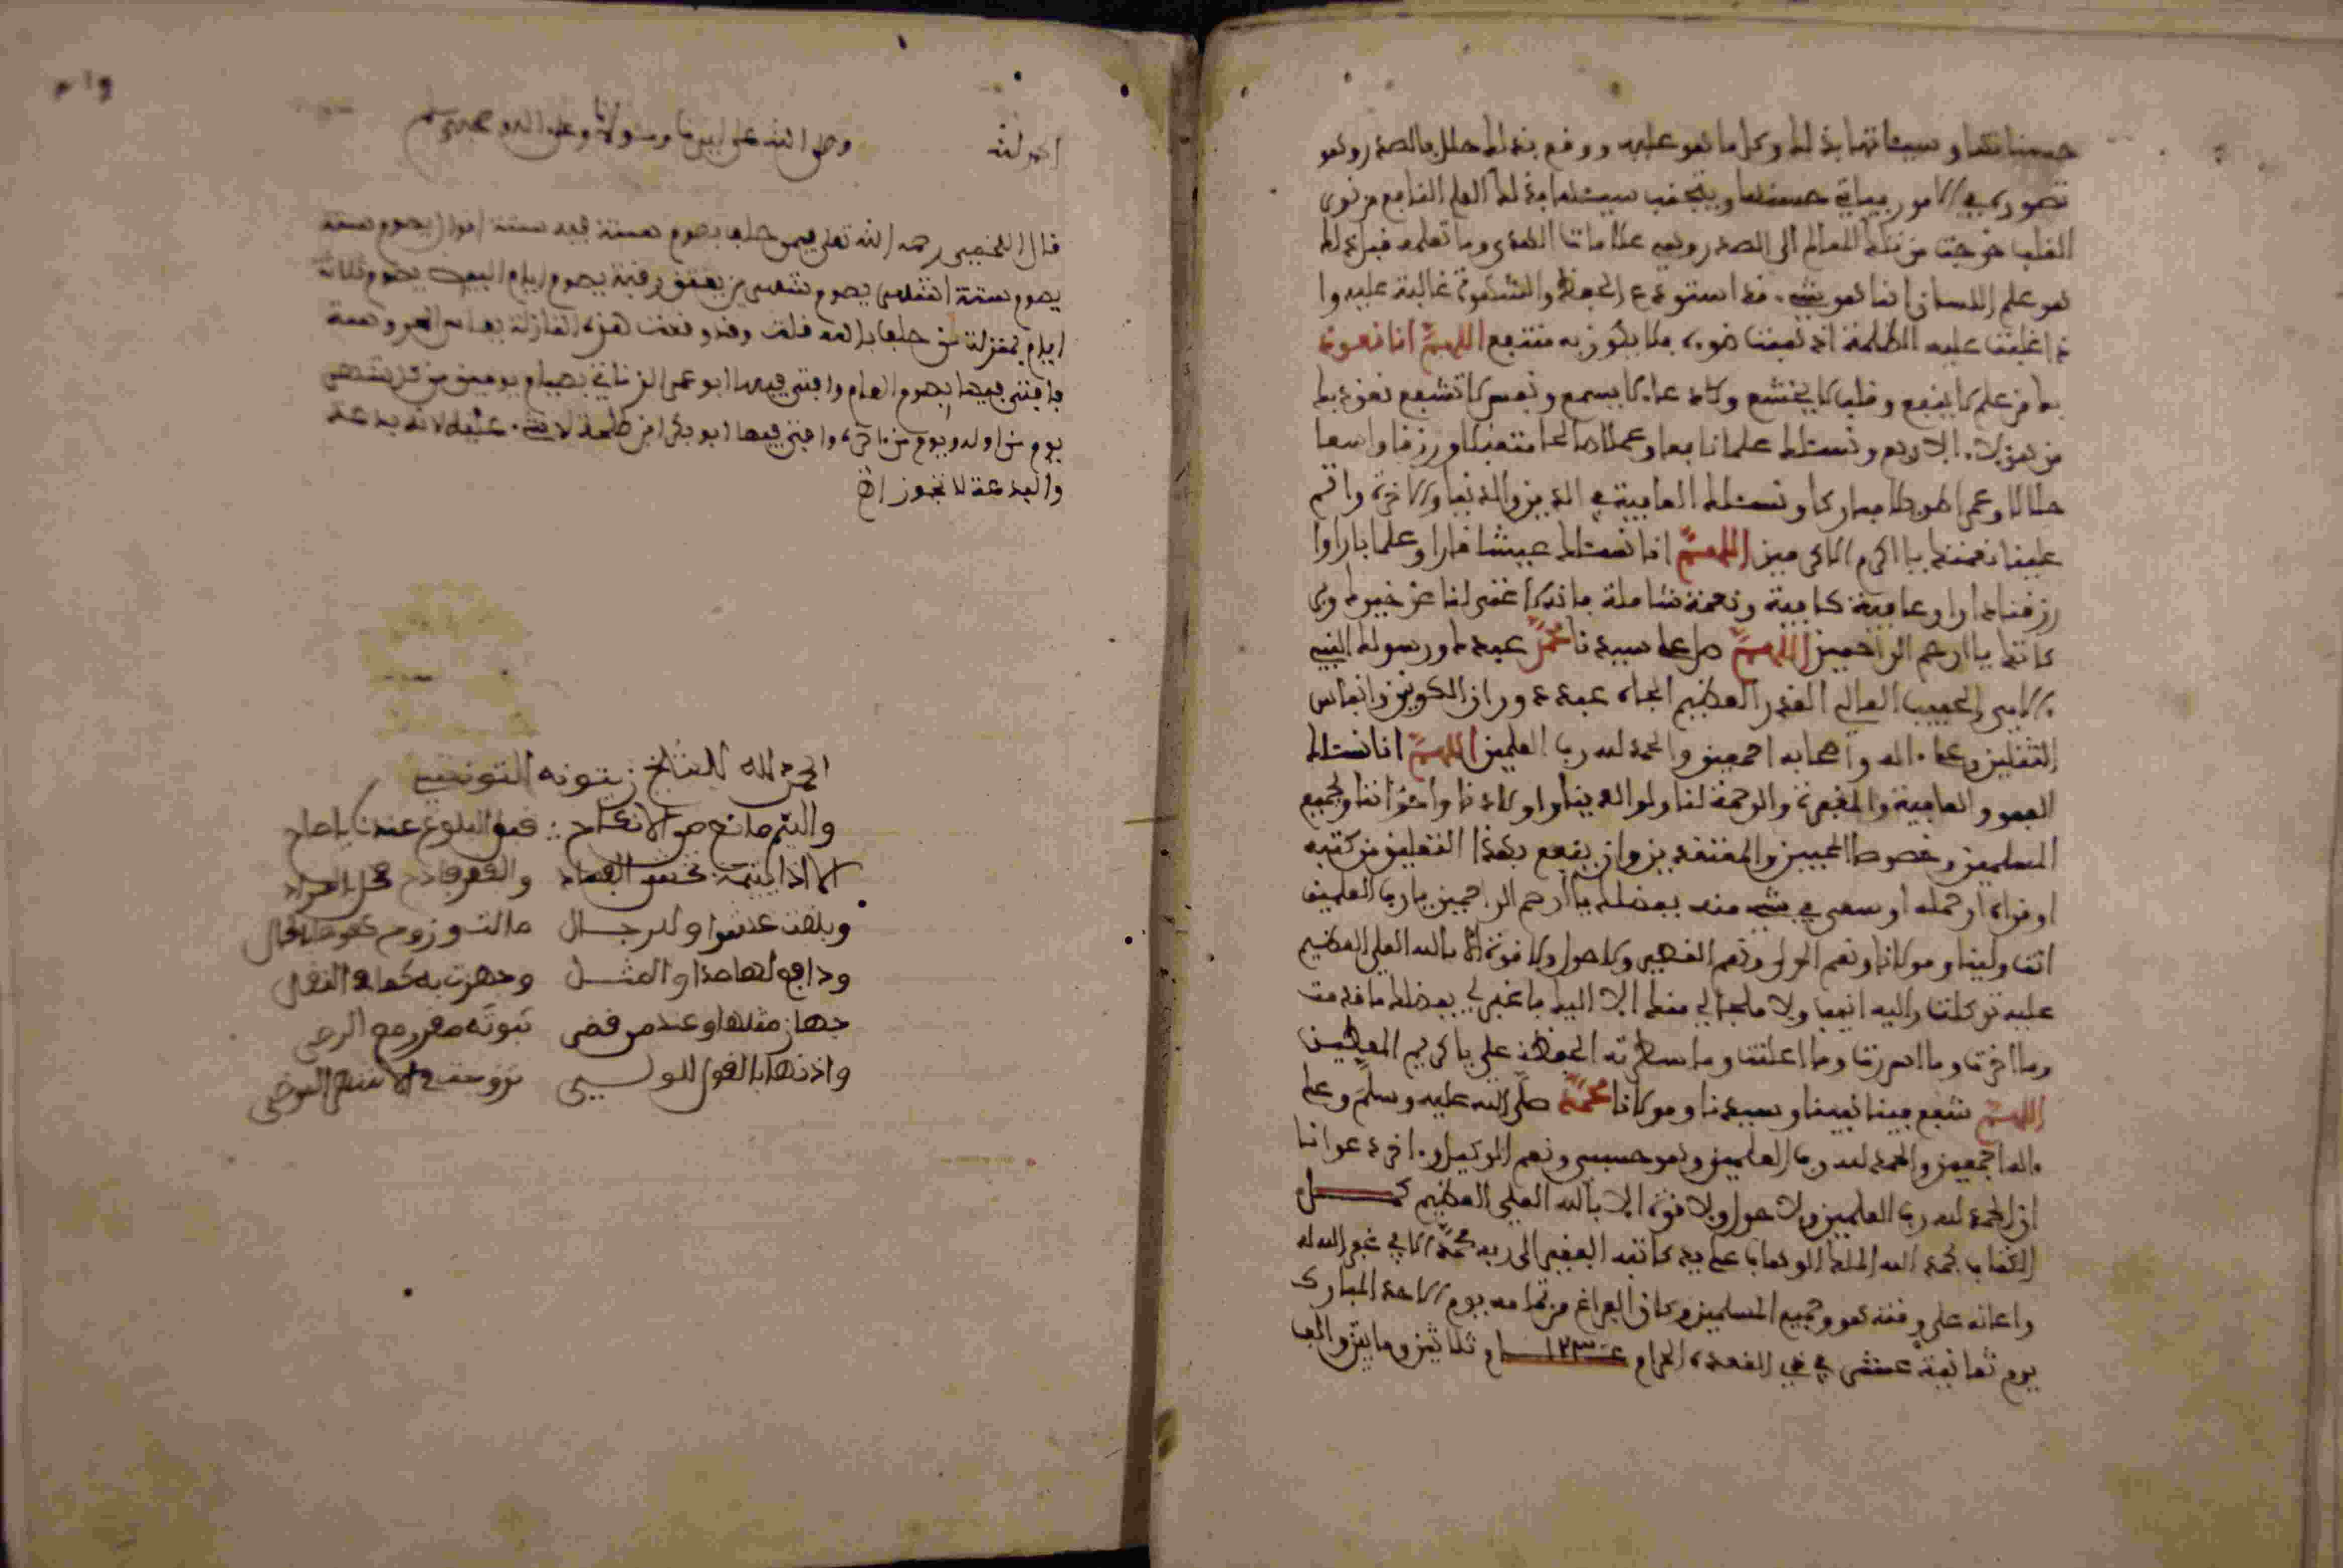 حسناتها وسيئاتها بذلك وكل ما هو عليه ووقع بذلك خلل بالصدر وهو
تصوركم في الامور بياتي حسنها ويتجنب سيئها بذلك العلم النافع من نوى
القلب خرجت من تلك المعالم الى الصدر وهي علامات الهدى وما تعلمه قبل ذلك
هو علم اللسان انما هو شيء قد استودع الحفظ والشهوة غالبة عليه وا
ذا غلبت عليه الظلمة اذهبت ضوءه فلا يكون به منتفع اللهم انا نعوذ
بك من علم لا ينفع وقلب لا يخشع ودعاء لا يسمع ونفس لا تشبع نعوذ بك
من هؤلاء الاربع ونسئلك علما نافعا وعملا صالحا متقبلا ورزقا واسعا
حلالا وعمرا طويلا مباركا ونسئلك العافية في الدين والدنيا والاخرة واتم
علينا نعمتك يا اكرم الاكرمين اللهم انا نسئلك عيشا قارا وعلما بارا وا
رزقنا دارا وعافية كافية ونعمة شاملة فانه لا غنى لنا عن خيرك وبر
كاتك يا ارحم الراحمين اللهم صل على سيدنا محمد عبدك ورسولك النبي
الامي الحبيب العالي القدر العظيم الجاه عدد دوران الكونين وانفاس
الثقلين وعلى اله واصحابه اجمعين والحمد لله رب العلمين اللهم انا نسئلك
العفو والعافية والمغفرة والرحمة لنا ولوالدينا واولادنا واخواننا ولجميع
المسلمين وخصوصا المحبين والمعتقدين وان ينفع بهذا التقليد من كتبه
او قراه او حمله او سعى في شيء منه بفضلك يا ارحم الراحمين يا رب العلمين
انت ولينا ومولانا ونعم المولى ونعم النصير ولا حول ولا قوة الا بالله العلي العظيم
عليه توكلت واليه انيب ولا ملجا لي منك الا اليك فاغفر لي بفضلك ما قدمت
وما اخرت وما اسررت وما اعلنت وما سطرته الحفظة علي يا كريم المعطين
اللهم شفع فينا نبينا وسيدنا ومولانا محمد صلى الله عليه وسلم وعلى
اله اجمعين والحمد لله رب العلمين وهو حسبي ونعم الوكيل واخر دعوانا
ان الحمد لله رب العلمين ولا حول ولا قوة الا بالله العلي العظيم كمل
الكتاب بحمد الله الملك الوهاب على يد كاتبه الفقير الى ربه محمد غفر الله له
واعانه على وقته هو وجميع المسلمين وكان الفراغ من تمامه يوم الاحد المبارك
يوم ثمانية عشر في ذي القعدة الحرام عـ١٢٣٠ـام ثلاثين ومايتين والف
الحمد لله وصلى الله على سيدنا ومولانا وعلى اله وصحبه وسلم
قال اللخمي رحمه الله تعلى فيمن حلف بصوم سنة فيه ستة اقوال يصوم سنة
يصوم ستة اشهر يصوم شهرين يعتق رقبة يصوم ايام البيض يصوم ثلاثة
ايام بمنزلة من حلف بالله قلت وقد وقعت هذه النازلة بفاس المحروسة
فافتى فيها بصوم العام وافتى فيها ابو عمر الزناتي بصيام يومين من كل شهر
يوم من اوله ويوم من اخره وافتى فيها ابو بكر ابن طلحة لا شيء عليه لانه بدعة
والبدعة لا تجوز اه
الحمد لله للشيخ زيتونه التونسي
واليتم مانع من الانكاح ∴ قبل البلوغ عندنا ياصاح
الا اذا يتيمة تخشى الفساد والفقر
وبلغت عشرا ولرجال مالت وزوج
ودافع لها صداق المثل وجهزت به
جهاز مثلها وعند من قضى ثبوته مقرر مع الرضى
واذنها بالقول للولي